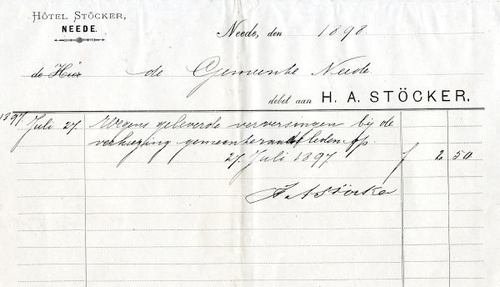 HÔTEL STÖCKER,
NEEDE.
Neede, den 1898
de Heer de Gemeente Neede
debet aan H. A. STÖCKER.
1897 Juli 27. Wegens geleverde ververschingen bij de
verkiezing gemeenteraadsleden op
27 Juli 1897 f 2 50
H A Stöcker